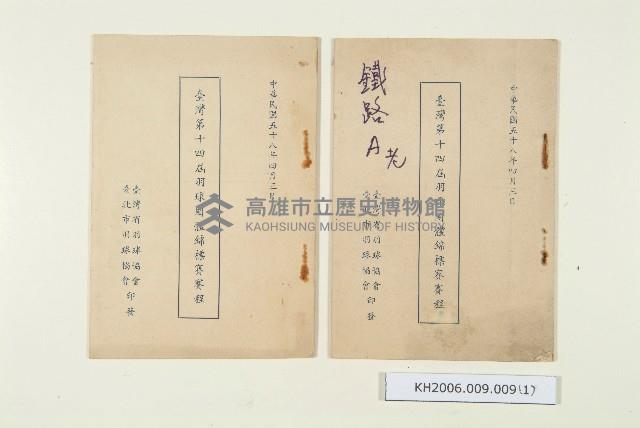 中華民國五十八年四月二日
臺灣第十四屆羽球團體錦標賽賽程
臺灣省羽球協會
臺北市羽球協會
印發
中華民國五十八年四月二日
臺灣第十四屆羽球團體錦標賽賽程
鐵路A
臺灣省羽球協會
臺北市羽球協會
印發
高雄市立歷史博物館
KAOHSIUNG MUSEUM OF HISTORY
KH2006.009.009(1)